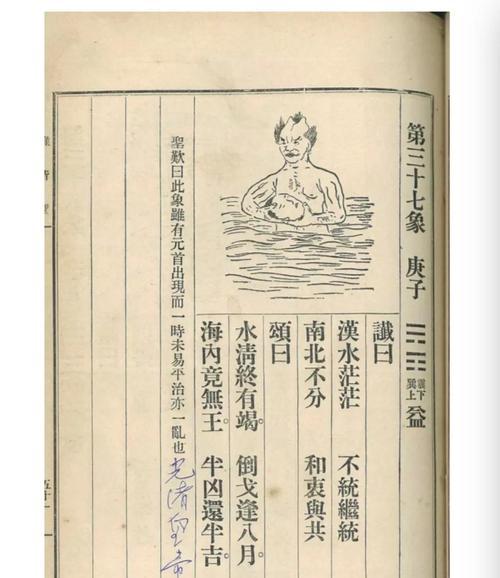 第三十七象 庚子 震下巽上 益
讖曰
漢水茫茫 不統繼統
南北不分 和衷與共
頌曰
水清終有竭 倒戈逢八月
海內竟無王 半凶還半吉
聖歎曰此象雖有元首出現而一時未易平治亦一亂也